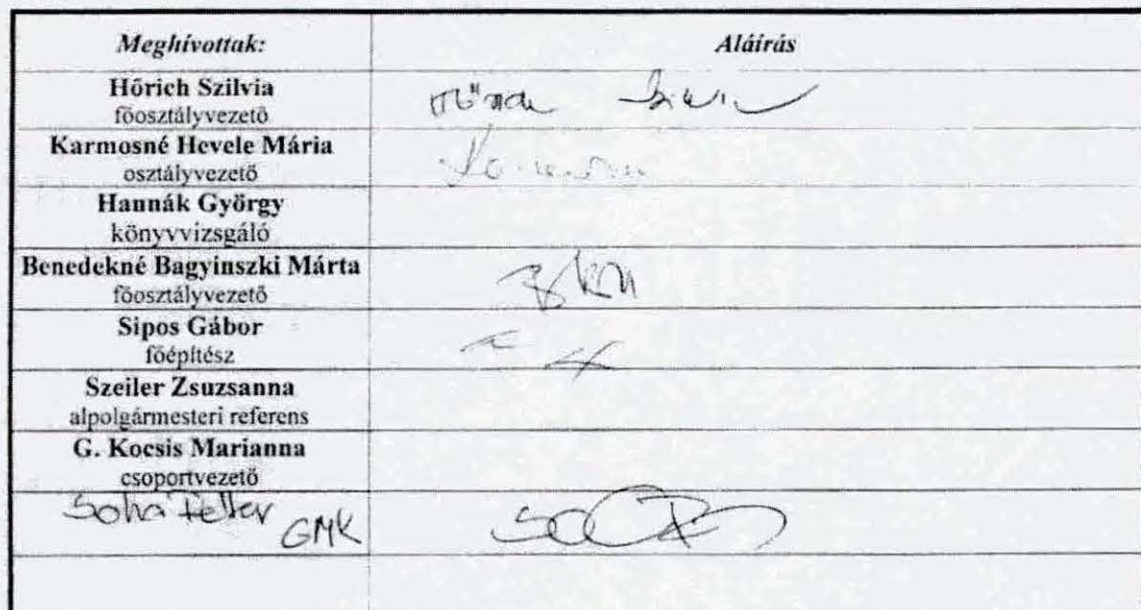 Meghívottak: Aláírás
Hőrich Szilvia
főosztályvezető
Karmosné Hevele Mária
osztályvezető
Hannák György
könyvvizsgáló
Benedekné Bagyinszki Márta
főosztályvezető
Sipos Gábor
főépítész
Szeiler Zsuzsanna
alpolgármesteri referens
G. Kocsis Marianna
csoportvezető
GMK